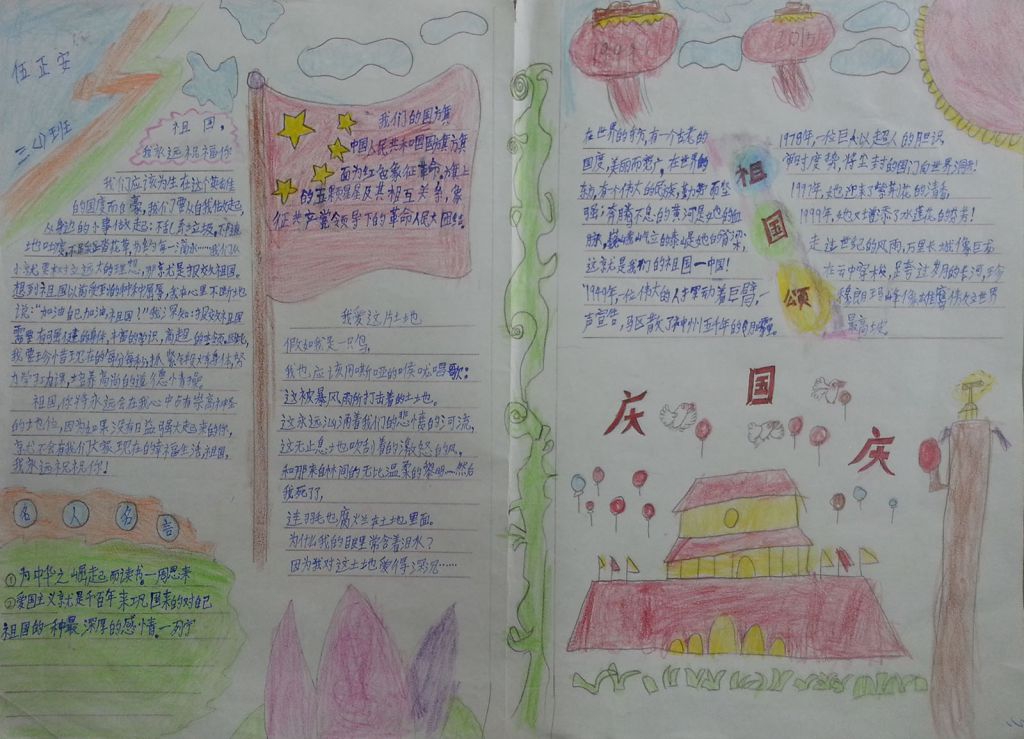 伍正安
三(4)班
祖国,
我永远祝福你
我们应该为生在这个英雄
的国度而自豪,我们要从自我做起,
从身边的小事做起:不乱丢垃圾,不随
地吐痰,不踩踏花草,节约每一滴水……我们从
小就要树立远大的理想,那就是报效祖国。
想到祖国以前受到的种种屈辱,我在心里不断地
说:"加油自己加油祖国!"我深知:报效祖国
需要有强健的身体,丰富的知识,高超的本领,因此,
我要珍惜现在的每分每秒,抓紧锻炼身体,努
力学习知识,培养高尚的道德情操。
祖国,你将永远会在我心中占有崇高神圣
的土地位,因为如果没有日益强大起来的你,
就不会有我们大家现在的幸福生活,祖国,
我永远祝福你!
名人名言
①为中华之崛起而读书。一周恩来
②爱国主义就是千百年来巩固来的对自己
祖国的一种最深厚的感情。一列宁
我们的国旗
中国人民共和国国旗旗
面为红色象征革命。旗上
的五颗星及其相互关系,象
征共产党领导下的革命人民大团结。
我爱这片土地
假如我是一只鸟,
我也应该用嘶哑的喉咙唱歌:
这被暴风雨所打击着的土地,
这永远汹涌着我们的悲愤的河流,
这无止息地吹刮着的激怒的风,
和那来自林间的无比温柔的黎明一然后
我死了,
连羽毛也腐烂在土地里面。
为什么我的眼里常含着泪水?
因为我对这土地爱得深沉……
1949
2015
祖国颂
在世界的东方,有一个古老的
国度,美丽而宽广,在世界的
东方,有个伟大的民族,勤劳而坚
强;奔腾不息的黄河是她的血
脉,巍峨屹立的泰山是她的脊梁,
这就是我们的祖国一中国!
1949年,一位伟大的人挥动着巨臂,
声宣告,驱散了神州五千年的阴霾。
1978年,一位巨人以超人的胆识,
审时度势,将尘封的国门向世界洞开!
1997年,她迎来了紫荆花的清香,
1999年,她又增添了水莲花的芬芳!
走进世纪的风雨,万里长城像巨龙
在云中穿梭,
穆朗玛峰像雄鹰傲立世界
最高土地
国庆
庆